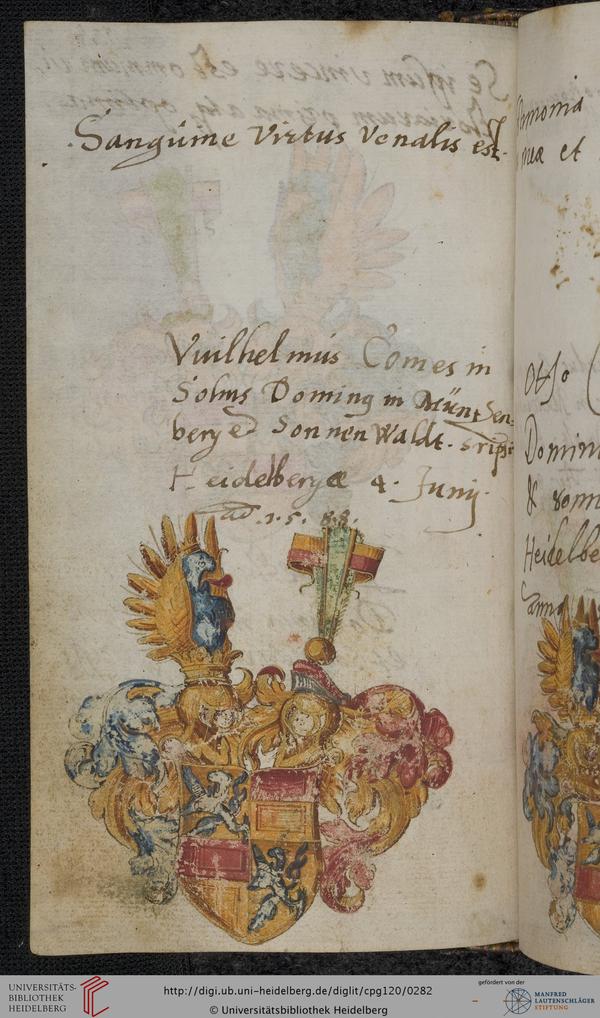 Sanguine Virtus Venalis est.
Vuilhelmus Comes in
Solms Doming in Müntzen=
berg et Sonnen Waldt. sripsi
Heidelbergæ 4. Junij.
ad. 1.5.8.8.
monia
meæ et
Otho
Domin
& sonn
Heidelbe
anno
UNIVERSITÄTS-
BIBLIOTHEK
HEIDELBERG
http://digi.ub.uni-heidelberg.de/diglit/cpg120/0282
© Universitätsbibliothek Heidelberg
gefördert von der
MANFRED
LAUTENSCHLÄGER
STIFTUNG